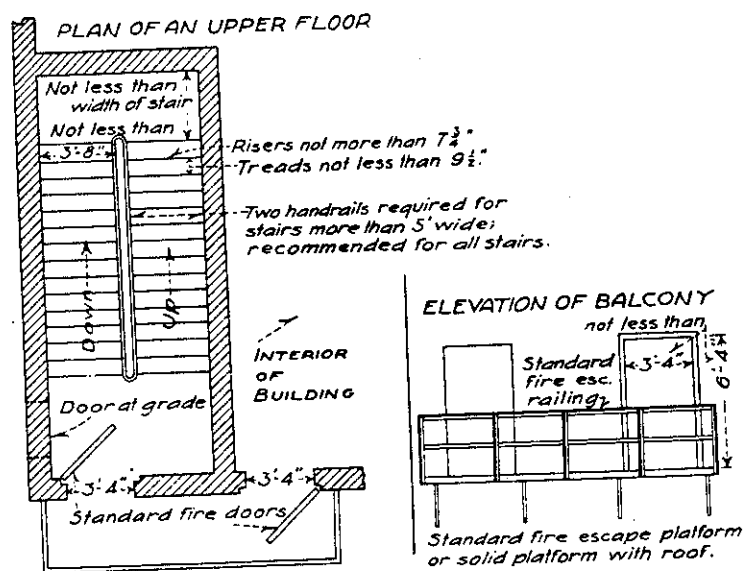 PLAN OF AN UPPER FLOOR
Not less than
width of stair
Not less than
3'-8"
Risers not more than 7 3/4"
Treads not less than 9 1/2"
Two handrails required for
stairs more than 5' wide;
recommended for all stairs.
Down
Up
INTERIOR
OF
BUILDING
Door at grade
3'-4"
3'-4"
Standard fire doors
ELEVATION OF BALCONY
not less than
3'-4"
6'-4"
Standard
fire esc.
railing
Standard fire escape platform
or solid platform with roof.